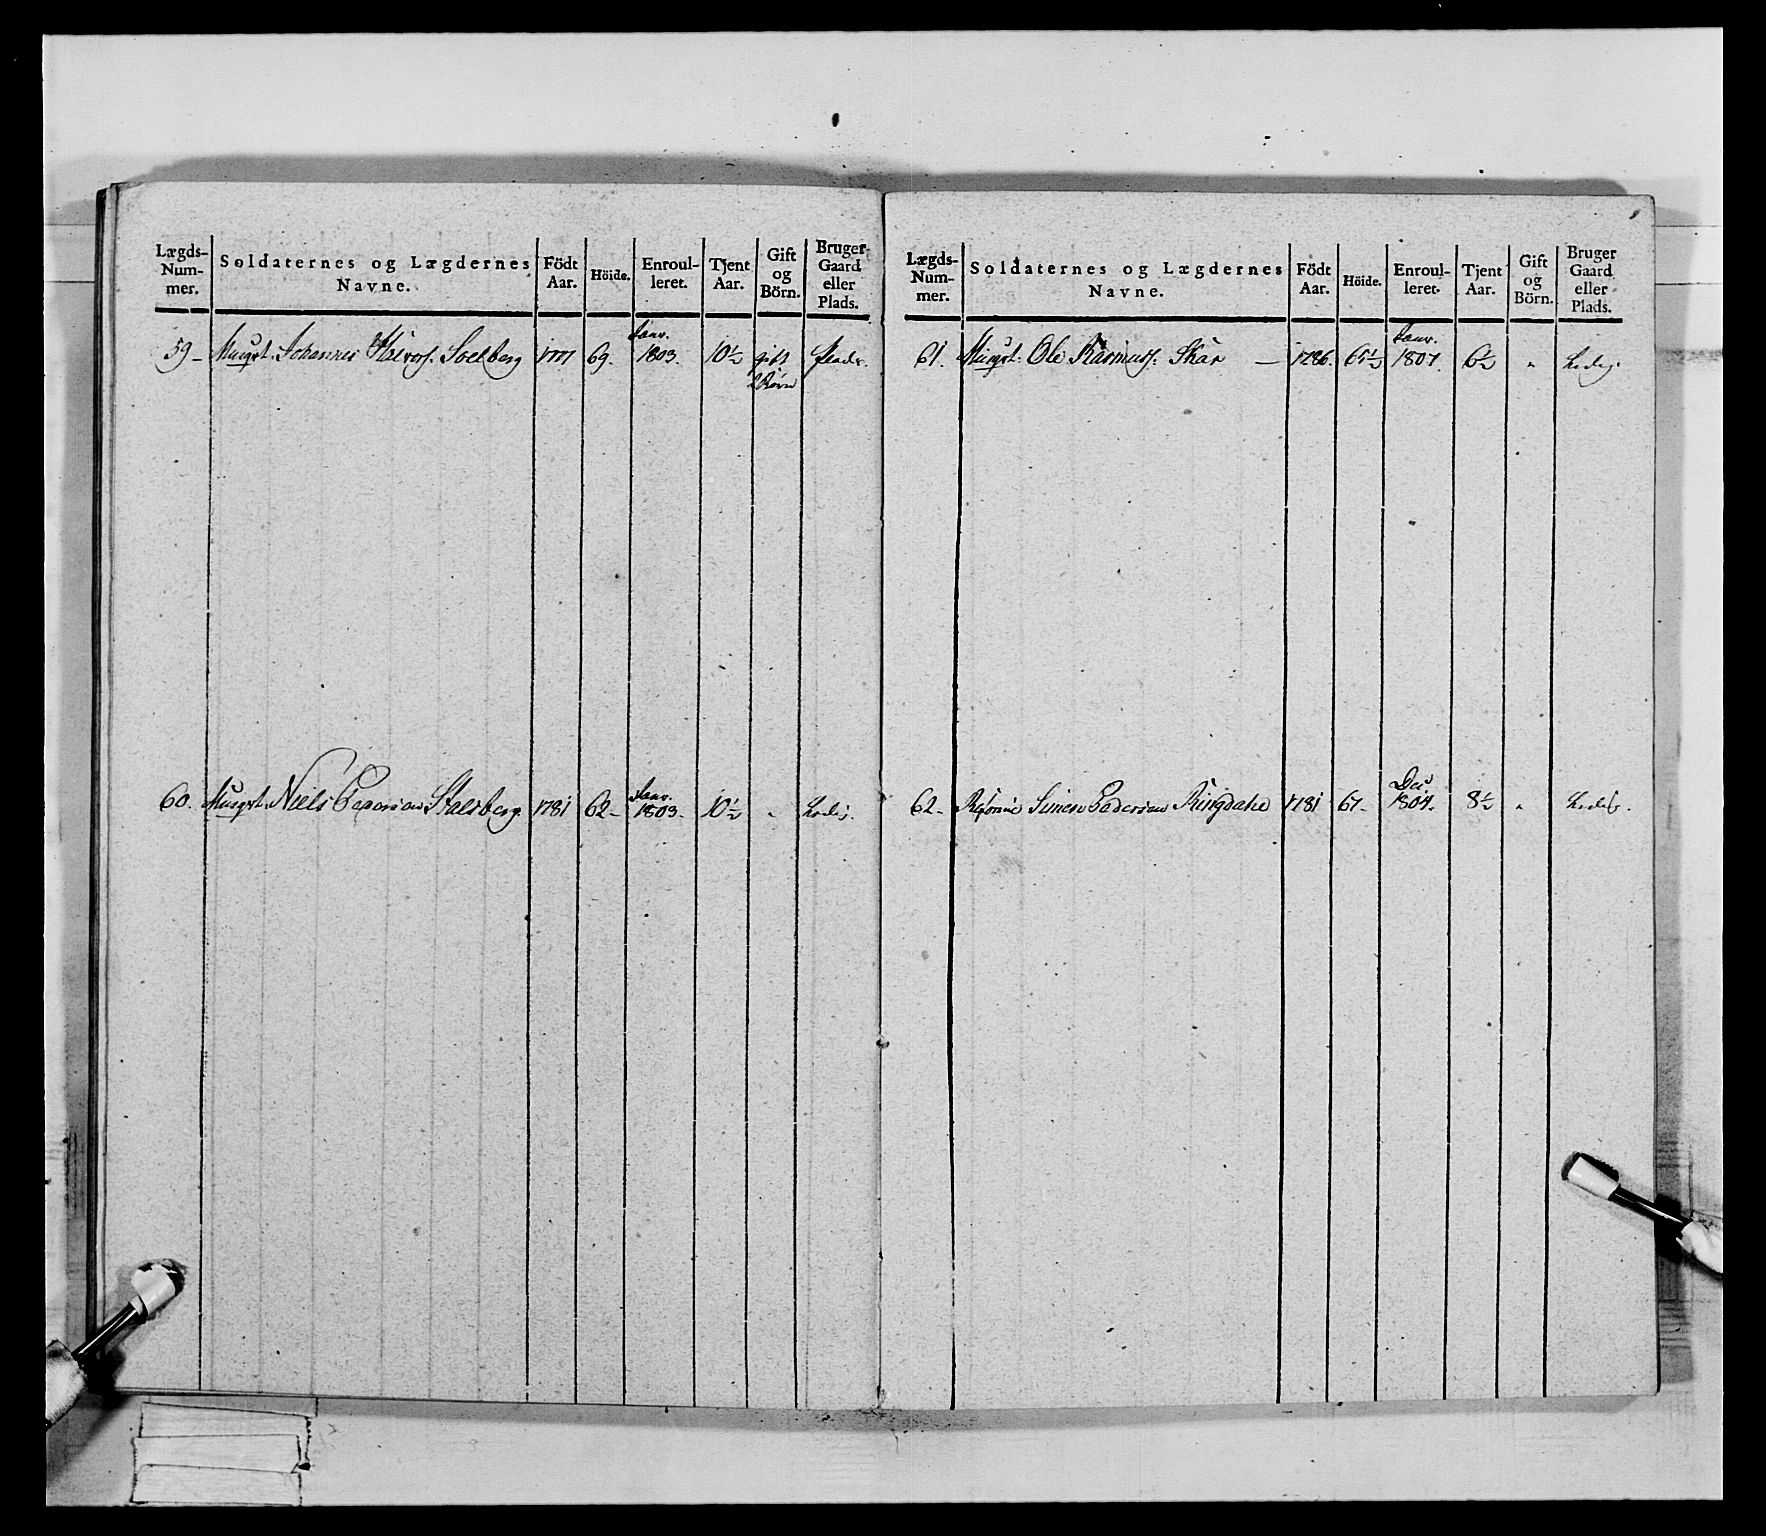 Lægds-
Num-
mer.
Soldaternes og Lægdernes
Navne.
Födt
Aar.
Höide.
Enroul-
leret.
Tjent
Aar.
Gift
og
Börn.
Bruger
Gaard
eller
Plads.
Janr.
59 - Musqt. Johannes Halvors. Soelberg 1777 69. 1803. 10½ gift Plads.
2 Börn
Janr.
60. Musqt. Niels Pedersen Stalsberg 1781 62 - 1803. 10½ " Ledig.
Lægds-
Num-
mer.
Soldaternes og Lægdernes
Navne.
Födt
Aar.
Höide.
Enroul-
leret.
Tjent
Aar.
Gift
og
Börn.
Bruger
Gaard
eller
Plads.
Janr.
61. Musqt. Ole Rasmuss. Skar — 1786. 65½ 1807. 6½ " Ledig.
Dec.
62 - Simen Pedersen Ringdahl 1781 67 - 1804. 8½ " Ledig.